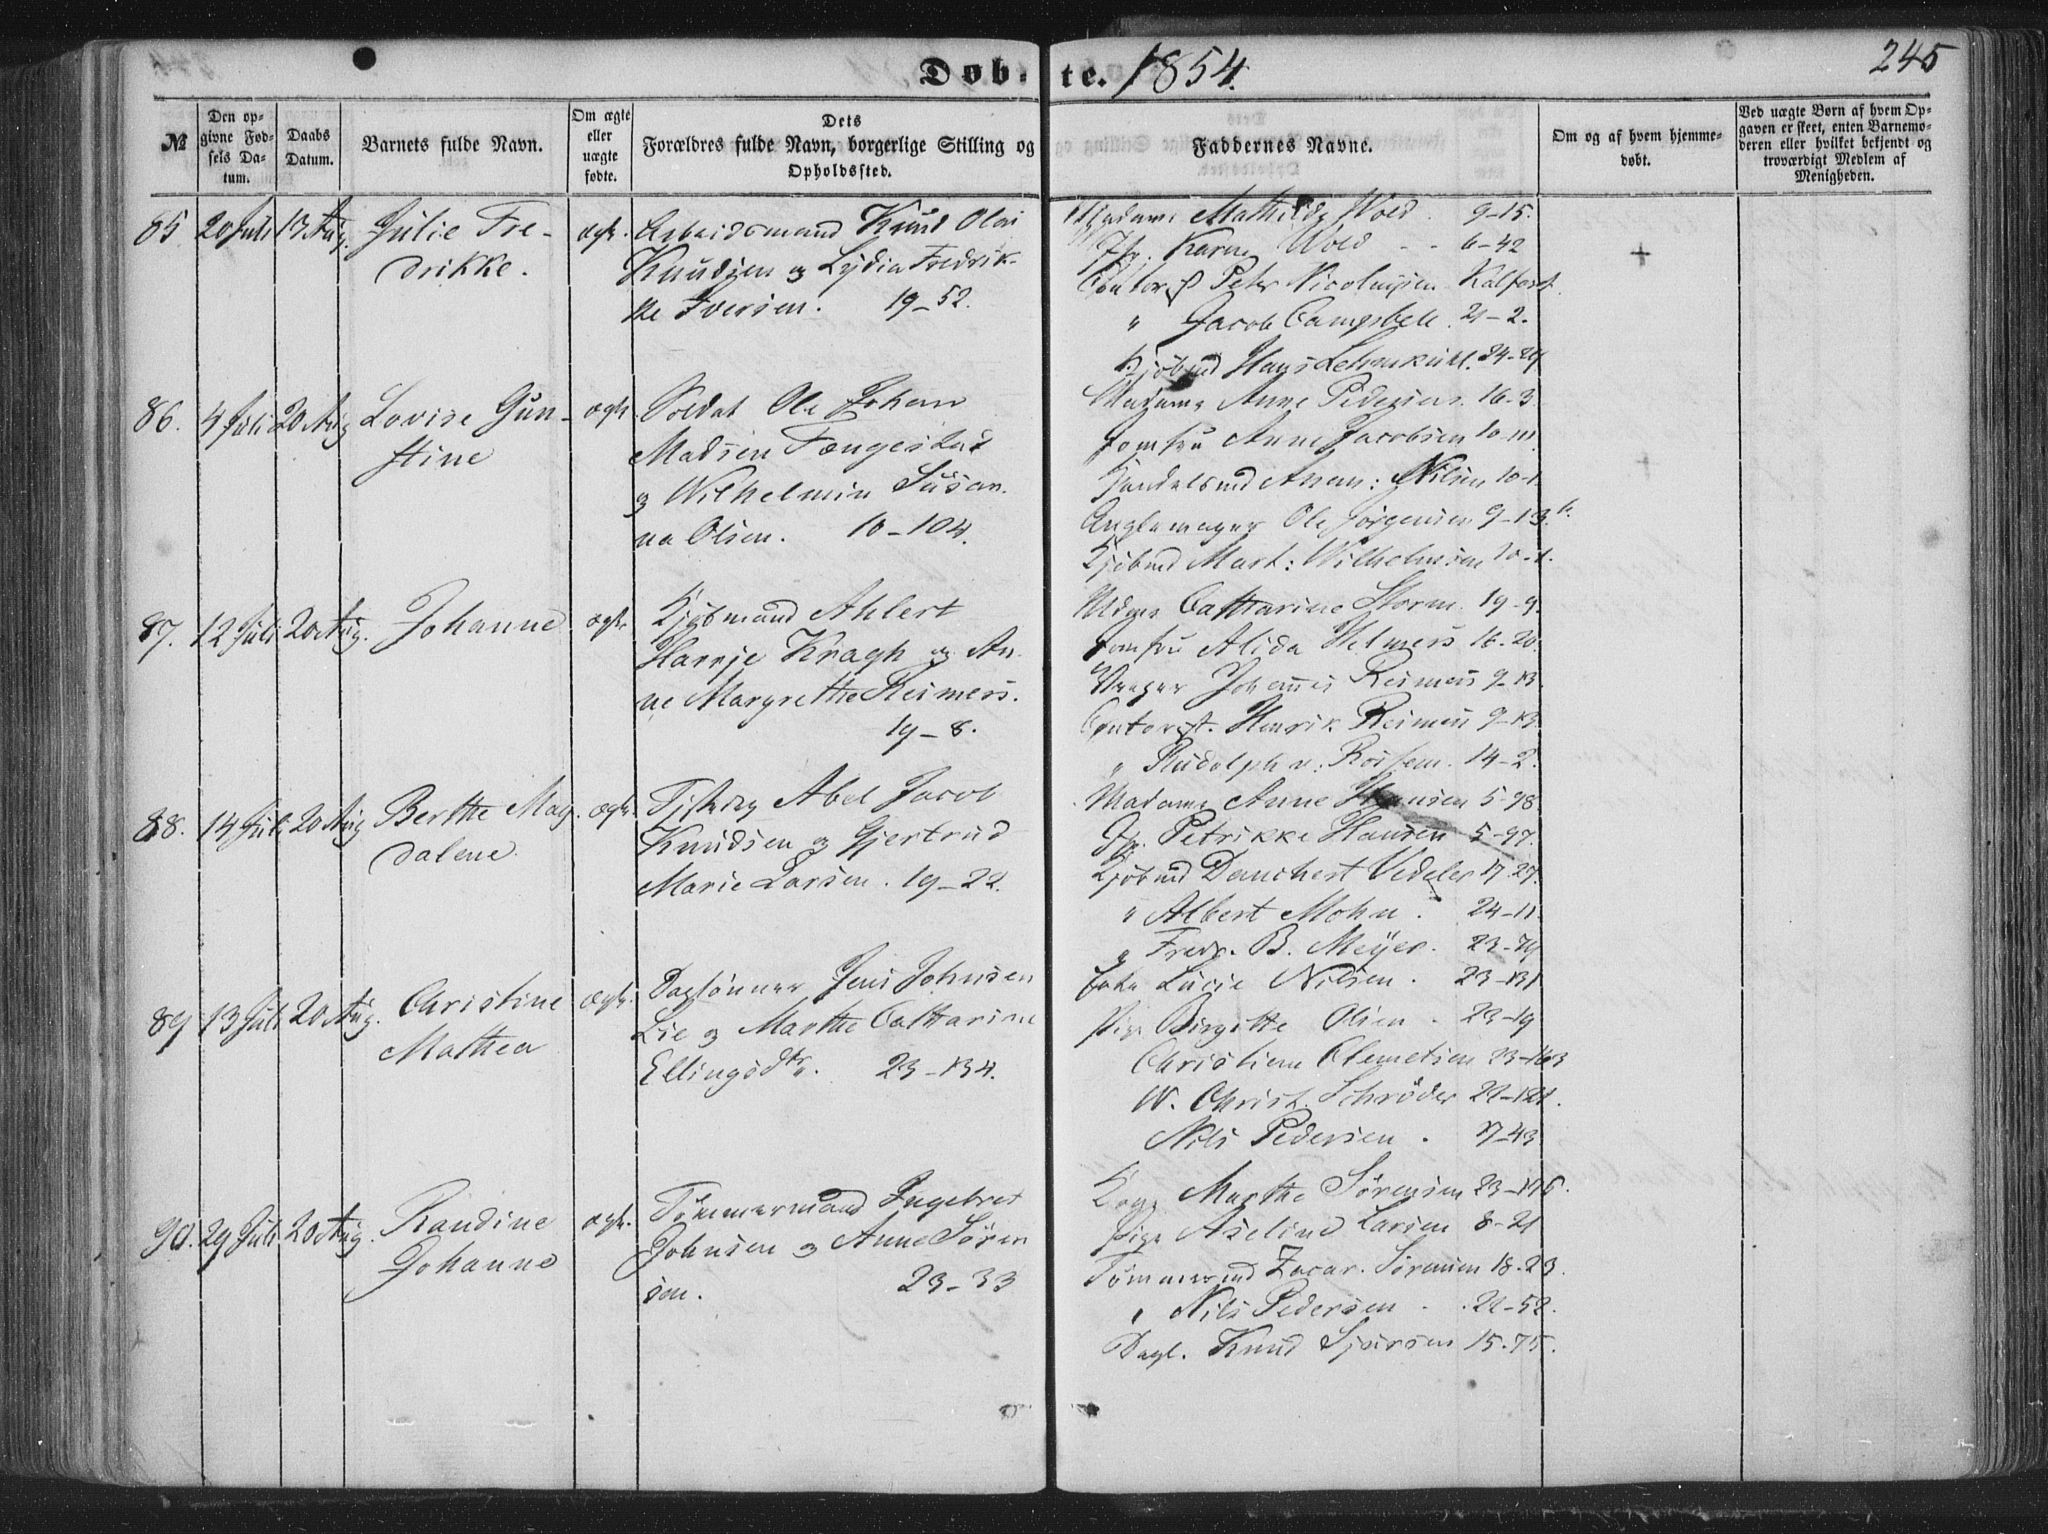 Døbte. 1854.
245
№
Den opgivne Fødsels Datum.
Daabs Datum.
Barnets fulde Navn.
Om ægte eller uægte fødte.
Dets Forældres fulde Navn, borgerlige Stilling og Opholdssted.
Faddernes Navne.
Om og af hvem hjemmedøbt.
Ved uægte Børn af hvem Opgaven er skeet, enten Barnemoderen eller hvilket bekjendt og troværdigt Medlem af Menigheden.
85. 20 Juli 13 Aug. Julie Fre-
drikke.
ægte.
Arbeidsmand Knud Olai
Knudsen og Lydia Fredrik-
ke Iversen. 19-52.
Madame Mathilde Wold. 9-15.
Jfr. Karen Wold - - 6-42
Contorist Peter Nicolaysen Kalfaret.
" Jacob Campbell. 21-2.
Kjøbmd Hans Lehmkuhl. 24-29
+
86. 4 Juli 20 Aug Lovise Gun-
stine
ægte.
Soldat Ole Johan
Madsen Tængestad
og Wilhelmine Susan-
na Olsen. 10-104.
Madame Anne Pedersen. 16-3
Jomfru Anne Jacobsen 10-111.
Handelsmd Nilsen 10-1.
Ole Jørgensen 9-13 b.
Kjøbmd Mart: Wilhelmsen 10-1.
+
87. 12 Juli 20 Aug. Johanne
ægte.
Kjøbmand Ahlert
Harrje Kragh og An-
ne Margrethe Reimers.
19-8.
Mdme Catharine Storm. 19-9.
Jomfru Alida Helmers 16-20.
Johannes Reimers 9-13.
Contorist. Henrik Reimers 9-13.
" Rudolph v: Rossem. 14-2.
88. 14 Juli 20 Aug Berthe Mag-
dalene.
ægte.
Abel Jacob
Knudsen og Gjertrud
Marie Larsen. 19-22.
Madame Anne Hansen 5-98
Jfr. Petrikke Hansen 5-97.
Kjøbmd Danchert Vedeler 17-27.
" Albert Mohn. 24-11.
" Fredr. B. Meyer. 23-79
89 13 Juli 20 Aug. Christine
Mathea
ægte.
Dagлønner Jens Johnsen
Lie og Marthe Catharine
Ellingsdtr. 23-134.
Enke Lucie Nilsen. 23-131
Pige Birgitte Olsen. 23-19
Christian Clemetsen 23-163
W. Christ. Schrøder 22-121.
Nils Pedersen. 17-43
90. 29 Juli 20 Aug. Randine
Johanne
ægte.
Tømmermand Ingebret
Johnsen og Anne Søren
sen. 23-33
Kone Marthe Sørensen 23-175.
Pige Aseline Larsen 8-21
Tømmermd Zacar. Sørensen 18-23.
" Nils Pedersen - . 22-52.
Dagl. Knud Sjursen 15-75.